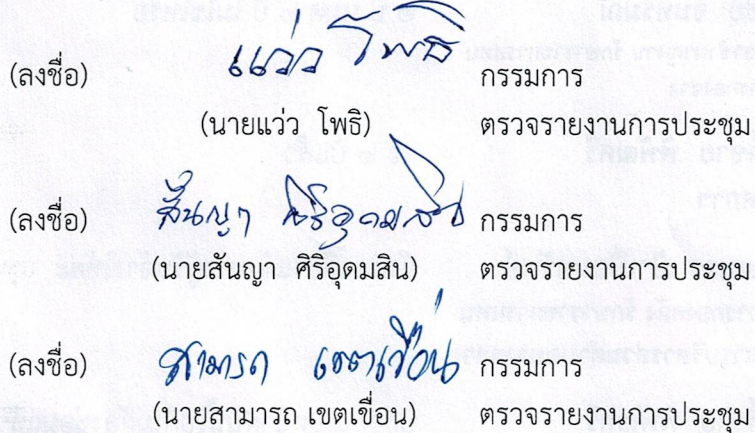 (ลงชื่อ) แว่ว โพธิ กรรมการ
(นายแว่ว โพธิ) ตรวจรายงานการประชุม
(ลงชื่อ) สัญญา ศิริอุดมสิน กรรมการ
(นายสันญา ศิริอุดมสิน) ตรวจรายงานการประชุม
(ลงชื่อ) สามารถ เขตเขื่อน กรรมการ
(นายสามารถ เขตเขื่อน) ตรวจรายงานการประชุม